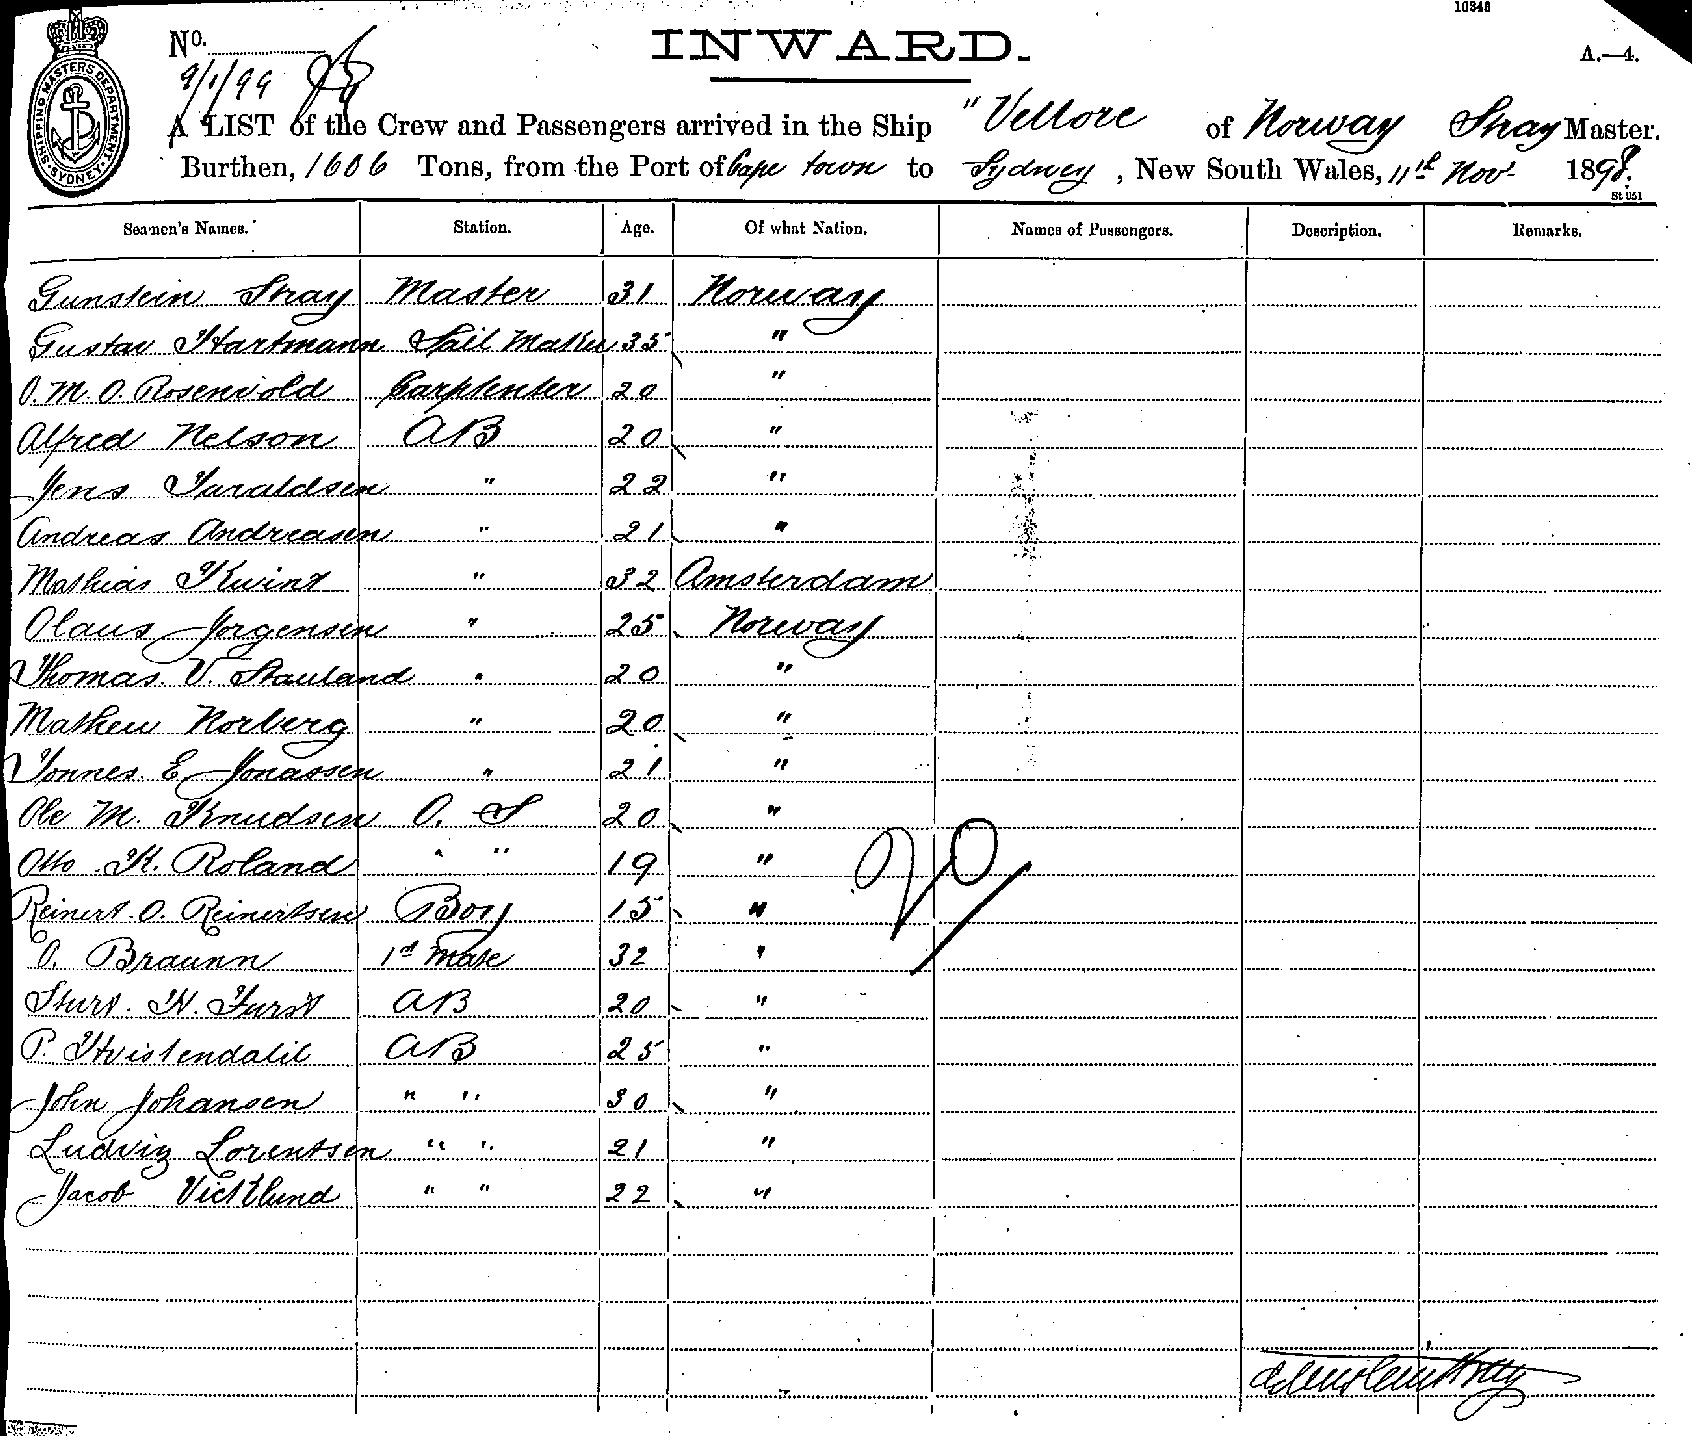 10348
INWARD.
A.—4.
No.
9/1/99
SHIPPING MASTERS DEPARTMENT SYDNEY
A LIST of the Crew and Passengers arrived in the Ship "Vellore of Norway Stray Master.
Burthen, 1606 Tons, from the Port of Cape town to Sydney, New South Wales, 11th Nov 1898.
St 051
Seamen's Names. Station. Age. Of what Nation. Names of Passengers. Description. Remarks.
Gunstein Stray Master 31 Norway
Gustav Hartmann Sail Maker 35 "
O. M. O. Rosenvold Carptenter 20 "
Alfred Nelson AB 20 "
Jens Taraldsen " 22 "
Andreas Andreasen " 21 "
Mathias Kwint " 32 Amsterdam
Olaus Jorgensen " 25 Norway
Thomas. V. Stauland " 20 "
Mathew Norberg " 20 "
Tonnes. E. Jonassen " 21 "
Ole M. Knudsen O. S 20 "
Otto. K. Roland " " 19 "
Reinert. O. Reinertsen Boy 15 "
O. Braunn 1st Mate 32 "
Sturt. H. Furst AB 20 "
P. Hvistendalil AB 25 "
John Johansen " " 30 "
Ludvig Lorentsen " " 21 "
Jacob Vicklund " " 22 "
20